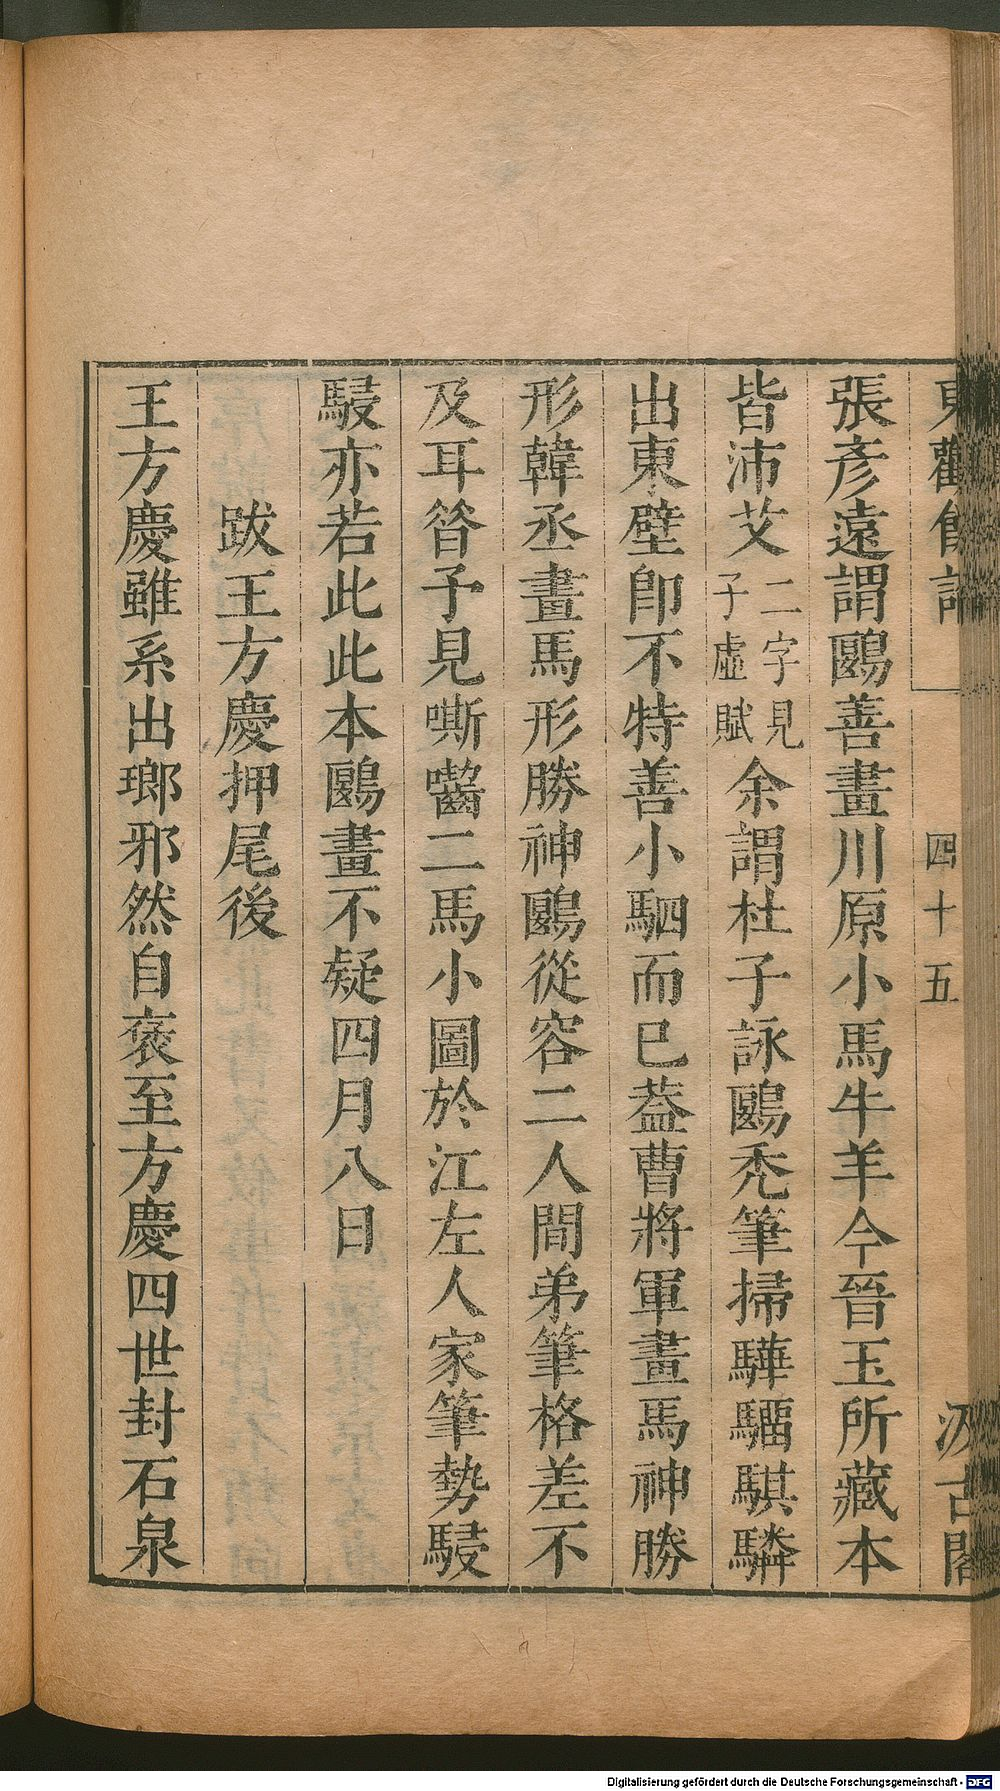 東觀餘論
四十五
汲古閣
張彥遠謂鷗善畫川原小馬牛羊今晉玉所藏本
皆沛艾二字見子虛賦余謂杜子詠鷗禿筆掃驊騮騏驎
出東壁卽不特善小駟而已葢曹將軍畫馬神勝
形韓丞畫馬形勝神鷗從容二人間弟筆格差不
及耳昝予見嘶囓二馬小圖於江左人家筆勢駸
駸亦若此此本鷗畫不疑四月八日
跋王方慶押尾後
王方慶雖系出瑯邪然自褒至方慶四世封石泉
Digitalisierung gefördert durch die Deutsche Forschungsgemeinschaft - DFG